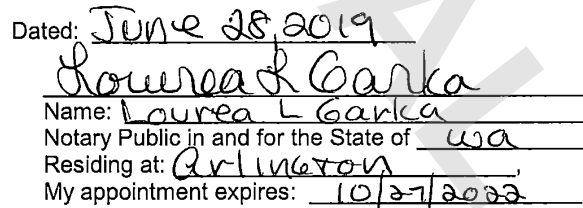 Dated: June 28, 2019
Lourea L Garka
Name: Lourea L Garka
Notary Public in and for the State of WA
Residing at: Arlington,
My appointment expires: 10/27/2022